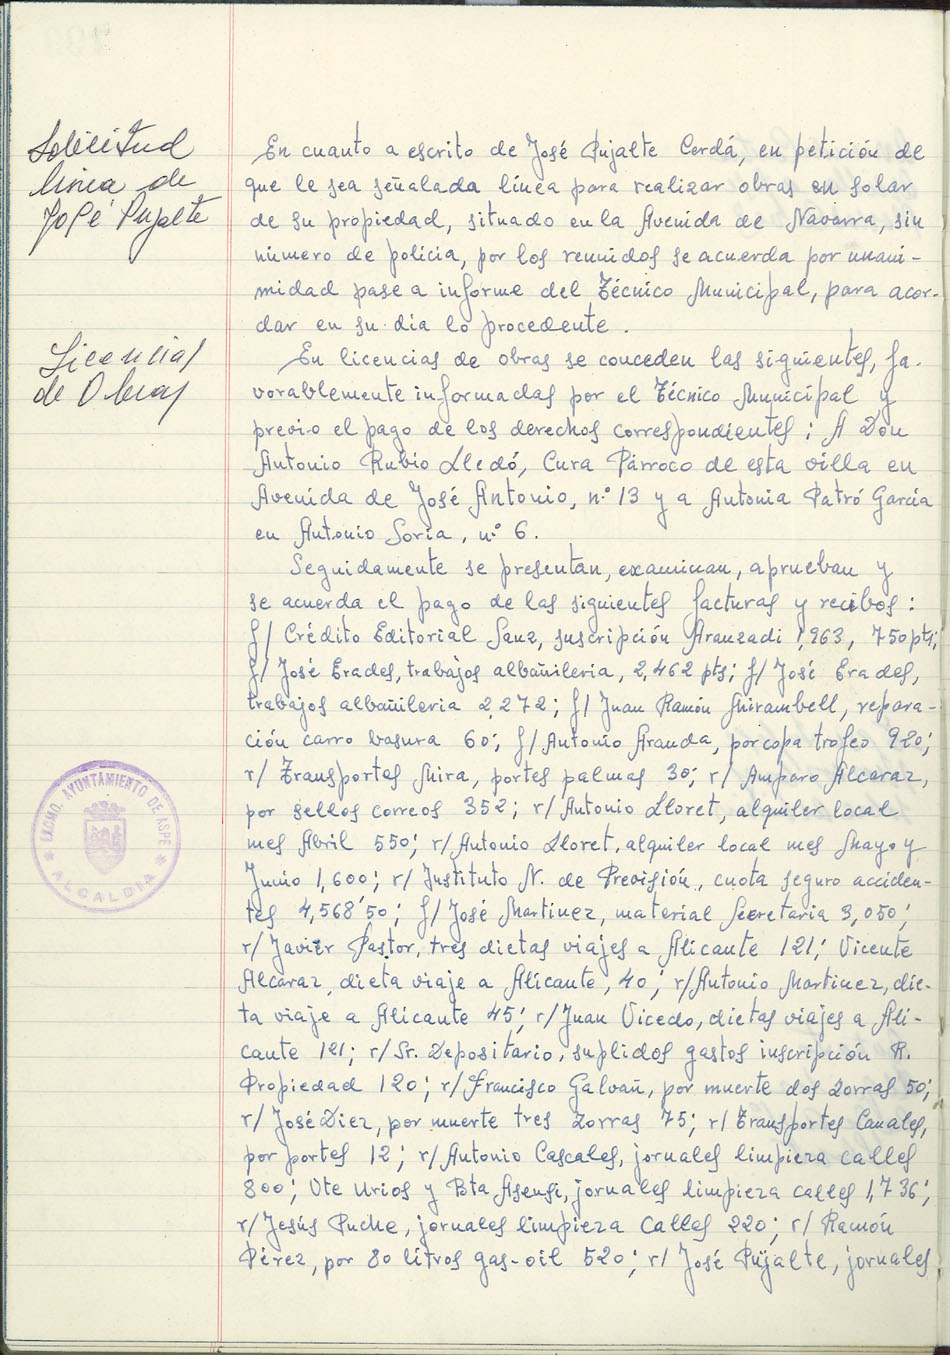 Solicitud
linea de
José Pujalte
En cuanto a escrito de José Pujalte Cerdá, en petición de
que le sea señalada línea para realizar obras en solar
de su propiedad, situado en la Avenida de Navarra, sin
número de policia, por los reunidos se acuerda por unani-
midad pase a informe del Técnico Municipal, para acor-
dar en su dia lo procedente.
Licencias
de Obras
En licencias de obras se conceden las siguientes, fa-
vorablemente informadas por el Técnico Municipal y
previo el pago de los derechos correspondientes: A Don
Antonio Rubio Lledó, Cura Párroco de esta villa en
Avenida de José Antonio, n.º 13 y a Antonia Patró García
en Antonio Soria, nº 6.
Seguidamente se presentan, examinan, aprueban y
se acuerda el pago de las siguientes facturas y recibos:
f/ Crédito Editorial Sanz, suscripción Aranzadi 1,963, 750 pts;
f/ José Erades, trabajos albañileria, 2,462 pts; f/ José Erades,
trabajos albañileria 2,272; f/ Juan Ramón Mirambell, repara-
ción carro basura 60; f/ Antonio Aranda, por copa trofeo 920;
r/ Transportes Mira, portes palmas 30; r/ Amparo Alcaraz,
por sellos correos 352; r/ Antonio Lloret, alquiler local
mes Abril 550; r/ Antonio Lloret, alquiler local mes Mayo y
Junio 1,600; r/ Instituto N. de Previsión, cuota seguro acciden-
tes 4,568'50; f/ José Martinez, material Secretaria 3,050;
r/ Javier Pastor, tres dietas viajes a Alicante 121; Vicente
Alcaraz, dieta viaje a Alicante, 40; r/ Antonio Martinez, die-
ta viaje a Alicante 45; r/ Juan Vicedo, dietas viajes a Ali-
cante 121; r/ Sr. Depositario, suplidos gastos inscripción R.
Propiedad 120; r/ Francisco Galvañ, por muerte dos zorras 50;
r/ José Diez, por muerte tres zorras 75; r/ Transportes Canales,
por portes 12; r/ Antonio Cascales, jornales limpieza calles
800; Vte Urios y Bta Asensi, jornales limpieza calles 1,736;
r/ Jesús Puche, jornales limpieza calles 220; r/ Ramón
Pérez, por 80 litros gas-oil 520; r/ José Pujalte, jornales
EXCMO. AYUNTAMIENTO DE ASPE
ALCALDIA